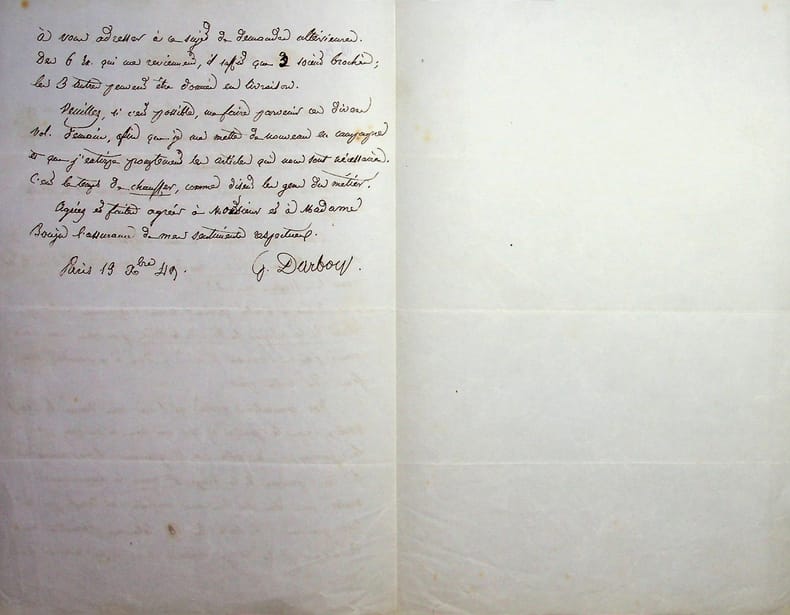 à vous adresser à ce sujet de demandes ultérieures.
Des 6 ex. qui me reviennent, il suffit que 3 soient brochés;
les 3 autres peuvent être donnés en livraison.
Veuillez, si c'est possible, me faire parvenir ces divers
vol. demain, afin que je me mette de nouveau en campagne
et que j'obtienne promptement les articles qui nous sont nécessaires.
C'est le temps de chauffer, comme disent les gens du métier.
Agréez et faites agréer à Monsieur et à Madame
l'assurance de mes sentiments respectueux.
Paris 19 Xbre 49. G. Darboy.